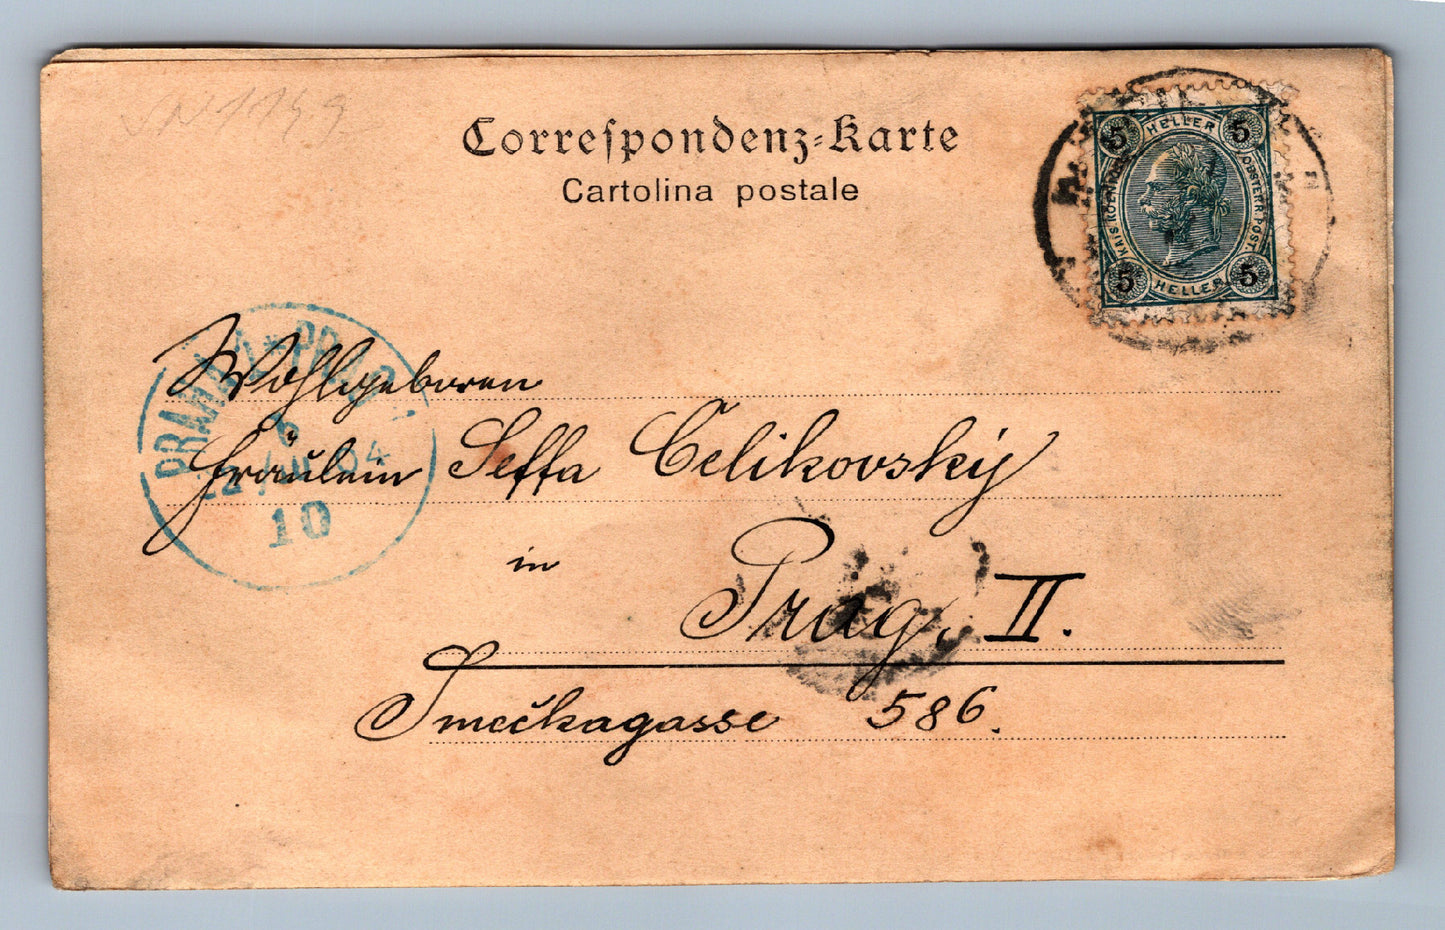 Correſpondenz=Karte
Cartolina postale
5 HELLER 5
KAIS. KOENIGL. OESTERR. POST.
5 HELLER 5
PRAHA 1 * PRAG 1
6
04
10
Wohlgeboren
Fräulein Seffa Čelikovský
in
Prag, II.
Smečkagasse 586.